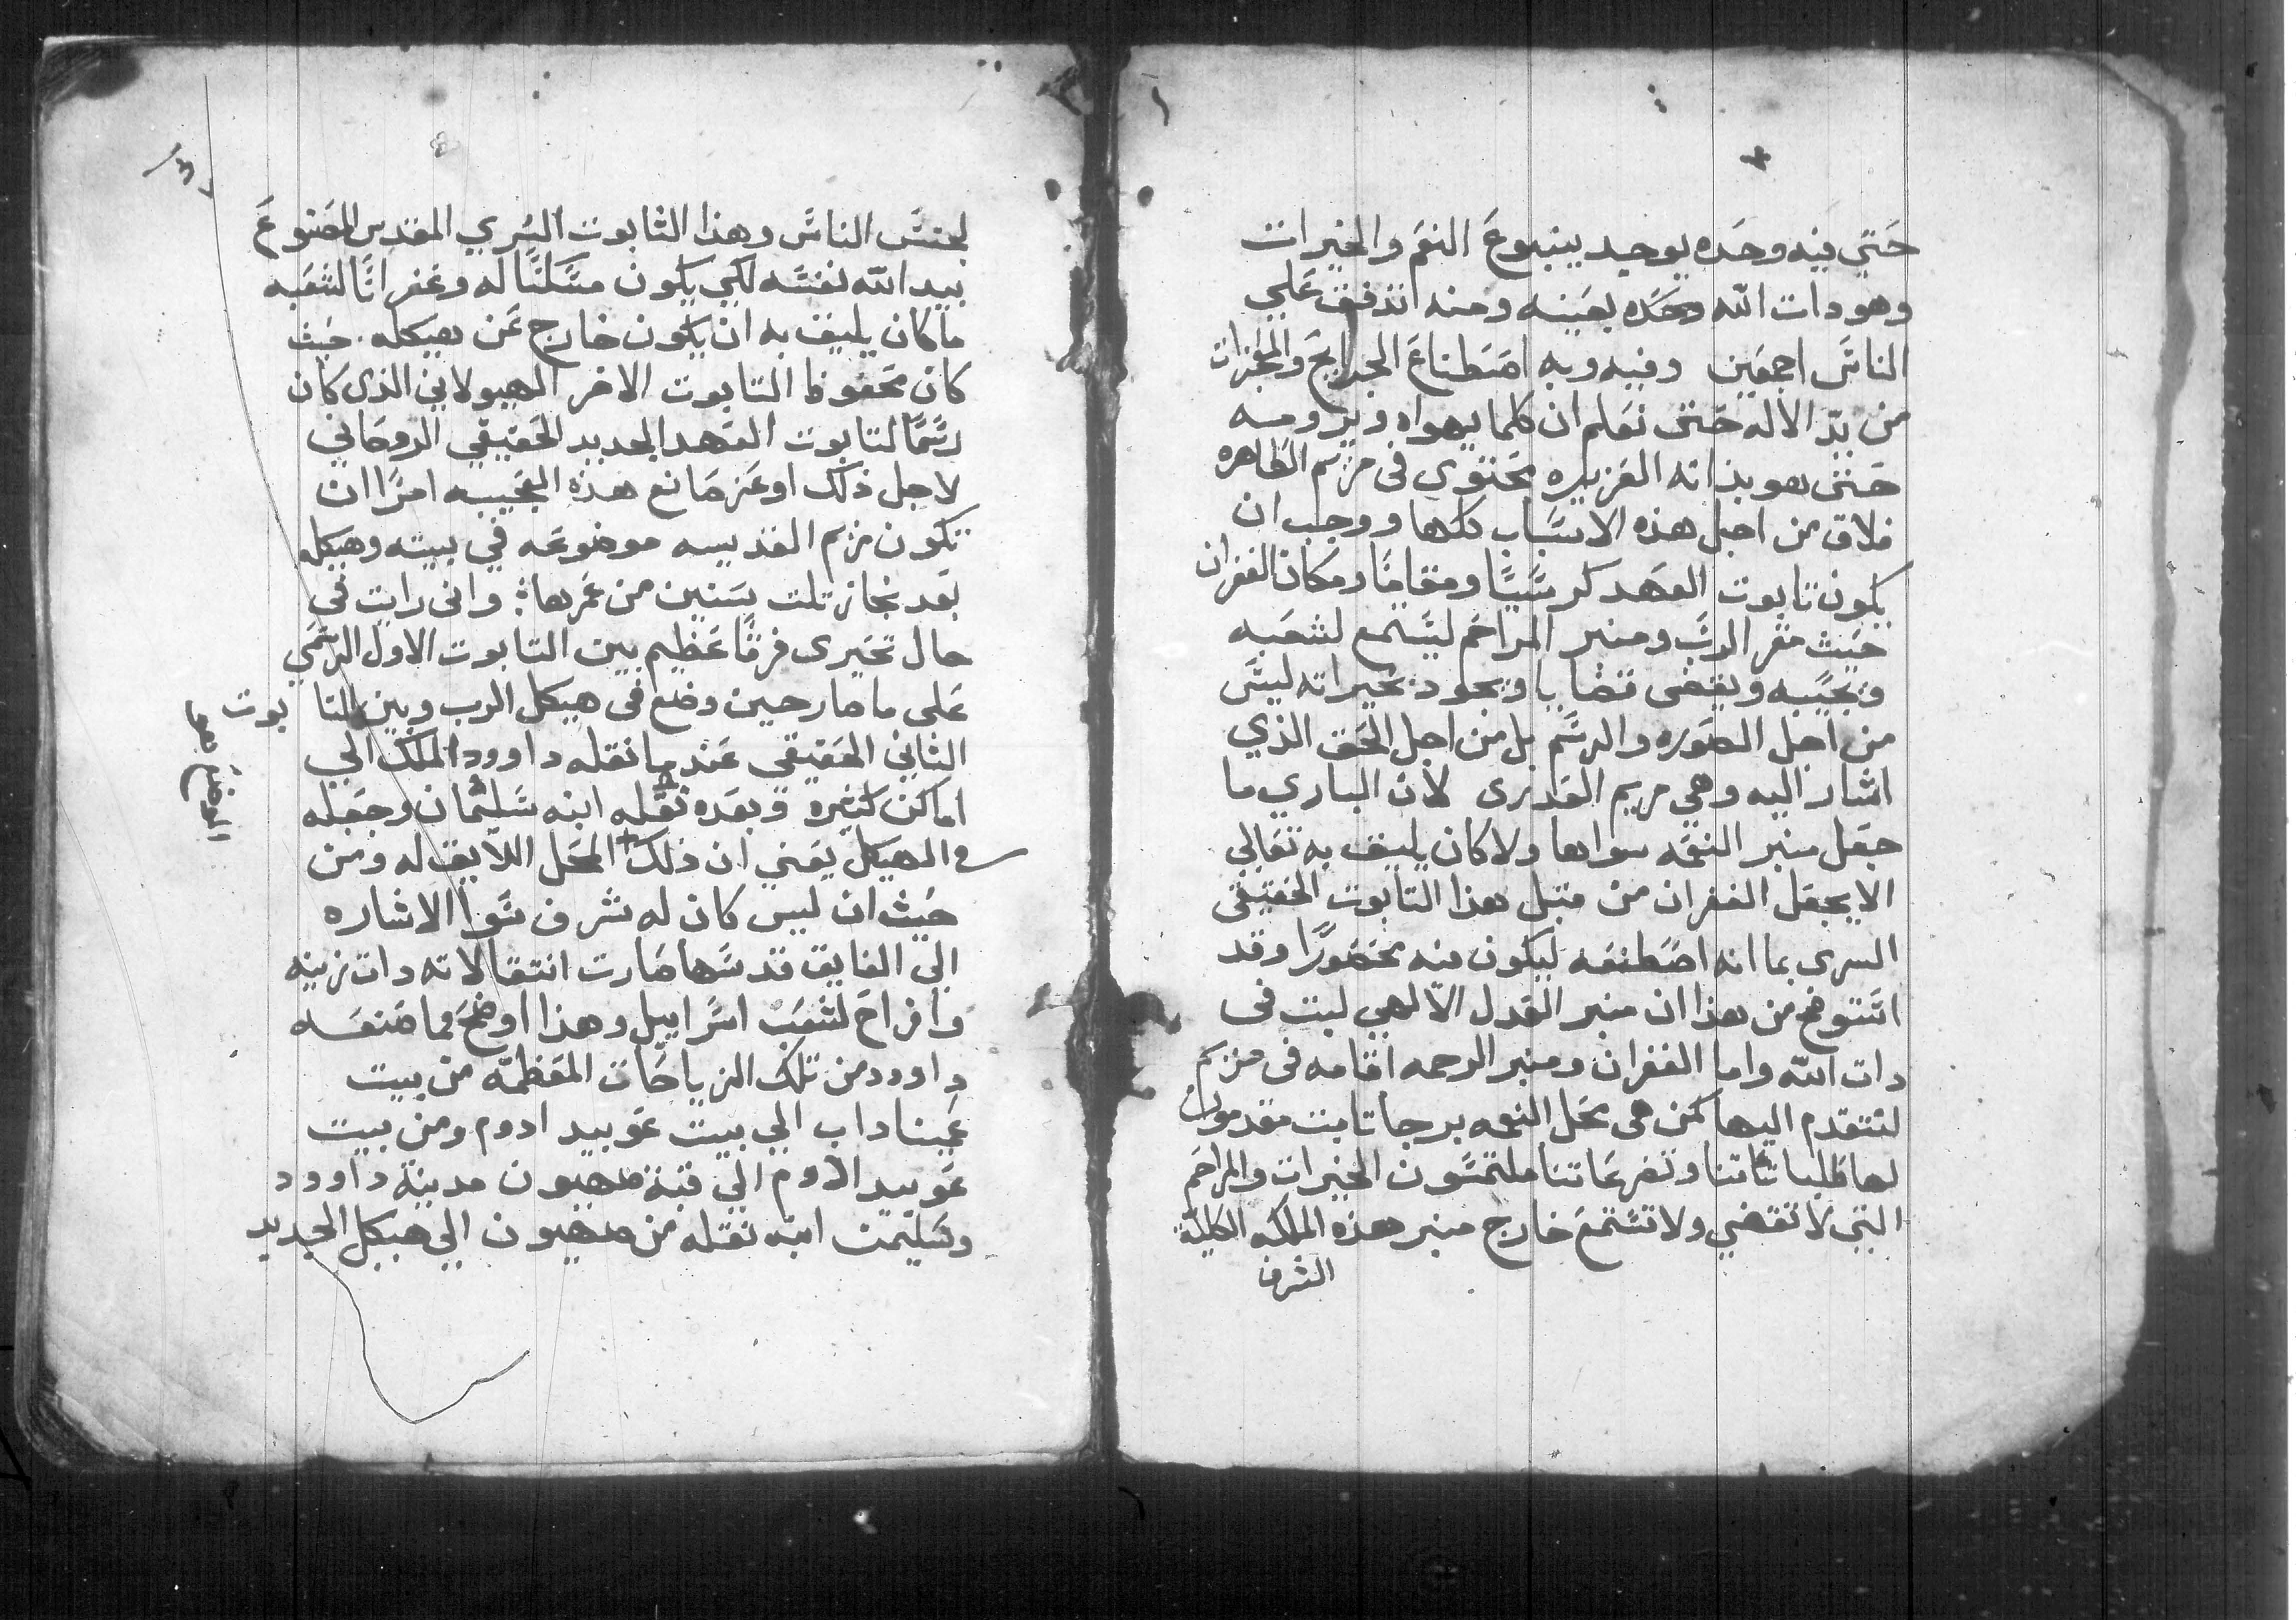 حتي فيه وحده يوجد ينبوع النعم والخيرات
وهو دات الله وحده بعينه ومنه اندفق علي
الناس اجمعين وفيه وبه اصطناع الجرايح والمعجزات
من يد الاله حتي نعلم ان كلما يهواه ويرومه
حتى هو بذاته العزيزه محتوي فى مريم الطاهره
فلاق من اجل هذه الاسباب كلها ووجب ان
يكون تابوت العهد كرسيًا ومقامًا ومكان الغفران
حيث مقر الرب ومنبر المراحم ليستمع لشعبه
ويجيبه ويقضى قضايا ويجود بخيراته ليس
من اجل الصوره والرسم بل من اجل الحق الذي
اشار اليه وهي مريم العذرى لان الباري ما
جعل منبر النعمه سواها ولا كان يليق به تعالي
الا يجعل الغفران من قبل هذا التابوت الحقيقى
السرى بما انه اصطنعه ليكون فيه محصورًا وقد
اتتوضح من هذا ان منبر العدل الالهي لبت فى
دات الله واما الغفران ومنبر الرحمه اقامه فى مريم
لنتقدم اليها كمن هى محل النعمه برجا تابت مقدمون
لها طلباتاتنا وتضرعاتنا ملتمسون الخيرات والمراحم
التي لا تقضي ولا تستمع خارج منبر هذه الملكه الكلية
الشرف
لجنس الناس وهذا التابوت السري المقدس المصنوع
بيد الله نفسه لكي يكون مسكنًا له وغفرانًا لشعبه
ما كان يليق به ان يكون خارج عن هيكله حيث
كان محفوظا التابوت الاخر الهيولاني الذى كان
رسمًا لتابوت العهد الجديد الحقيقي الروحاني
لاجل ذلك اوعز صانع هذه العجيبه امرًا ان
تكون مريم القديسه موضوعه في بيته وهيكله
بعد نجاز تلت سنين من عمرها وانى رايت في
حال تحيرى فرقًا عظيم بين التابوت الاول الرسمي
على ما صار حين وضع فى هيكل الرب وبين التا بوت
الثاني الحقيقي عند ما نقله داوود الملك الي
اماكن كتيره وبعده نقله ابنه سليمان وجعله
في الهيكل يعني ان ذلك المحل اللايق له ومن
حيث ان ليس كان له شرف سوا الاشاره
الي الفايق قدسها صارت انتقالاته دات زينه
وافراح لشعب اسراييل وهذا اوضح مما صنعه
داوود من تلك الزياحات المعظمه من بيت
عميناداب الي بيت عوبيد ادوم ومن بيت
عوبيد ادوم الي قبة صهيون مدينة داوود
وسليمن ابنه نقله من صهيون الي هيكل الجديد